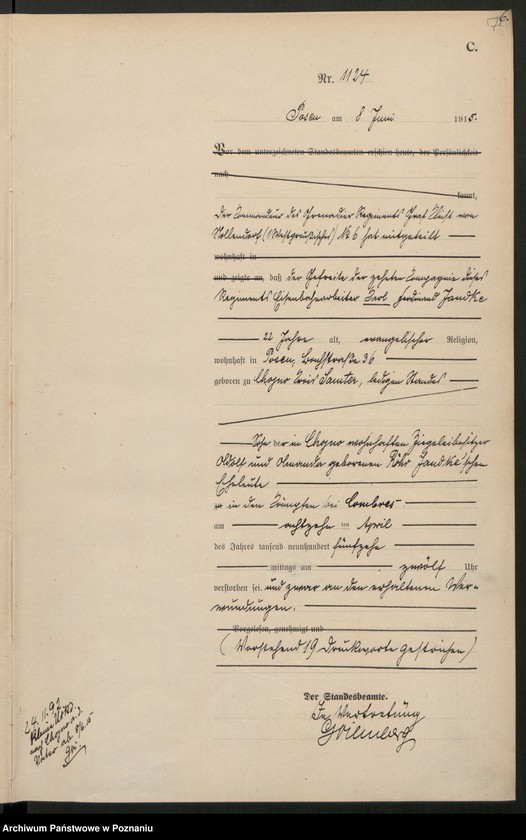 76.
C.
Nr. 1124
Posen am 8 Juni 1915.
Vor dem unterzeichneten Standesbeamten erschien heute, der Persönlichkeit
nach
kannt,
Der Kommandeur des Grenadier Regiments Graf Kleist von
Nollendorf (1 Westpreußisches) No 6 hat mitgeteilt
wohnhaft in
und zeigte an, daß der Gefreite der zehnten Kompagnie dieses
Regiments Eisenbahnarbeiter Karl Ferdinand Jandke
22 Jahre alt, evangelischer Religion,
wohnhaft in Posen, Bachstraße 36
geboren zu Chojno Kreis Samter, ledigen Standes
Sohn der in Chojno wohnhaften Ziegeleibesitzer
Adolf und Amanda geborenen Jandke'schen
Eheleute
in den Kämpfen bei Combres
am achtzehn ten April
des Jahres tausend neunhundert fünfzehn
mittags um zwölf Uhr
verstorben sei. und zwar an den erhaltenen Ver-
wundungen.
Vorgelesen, genehmigt und
(Vorstehend 19 Druckworte gestrichen)
Der Standesbeamte.
In Vertretung
24.11.92
Chojno
Archiwum Państwowe w Poznaniu